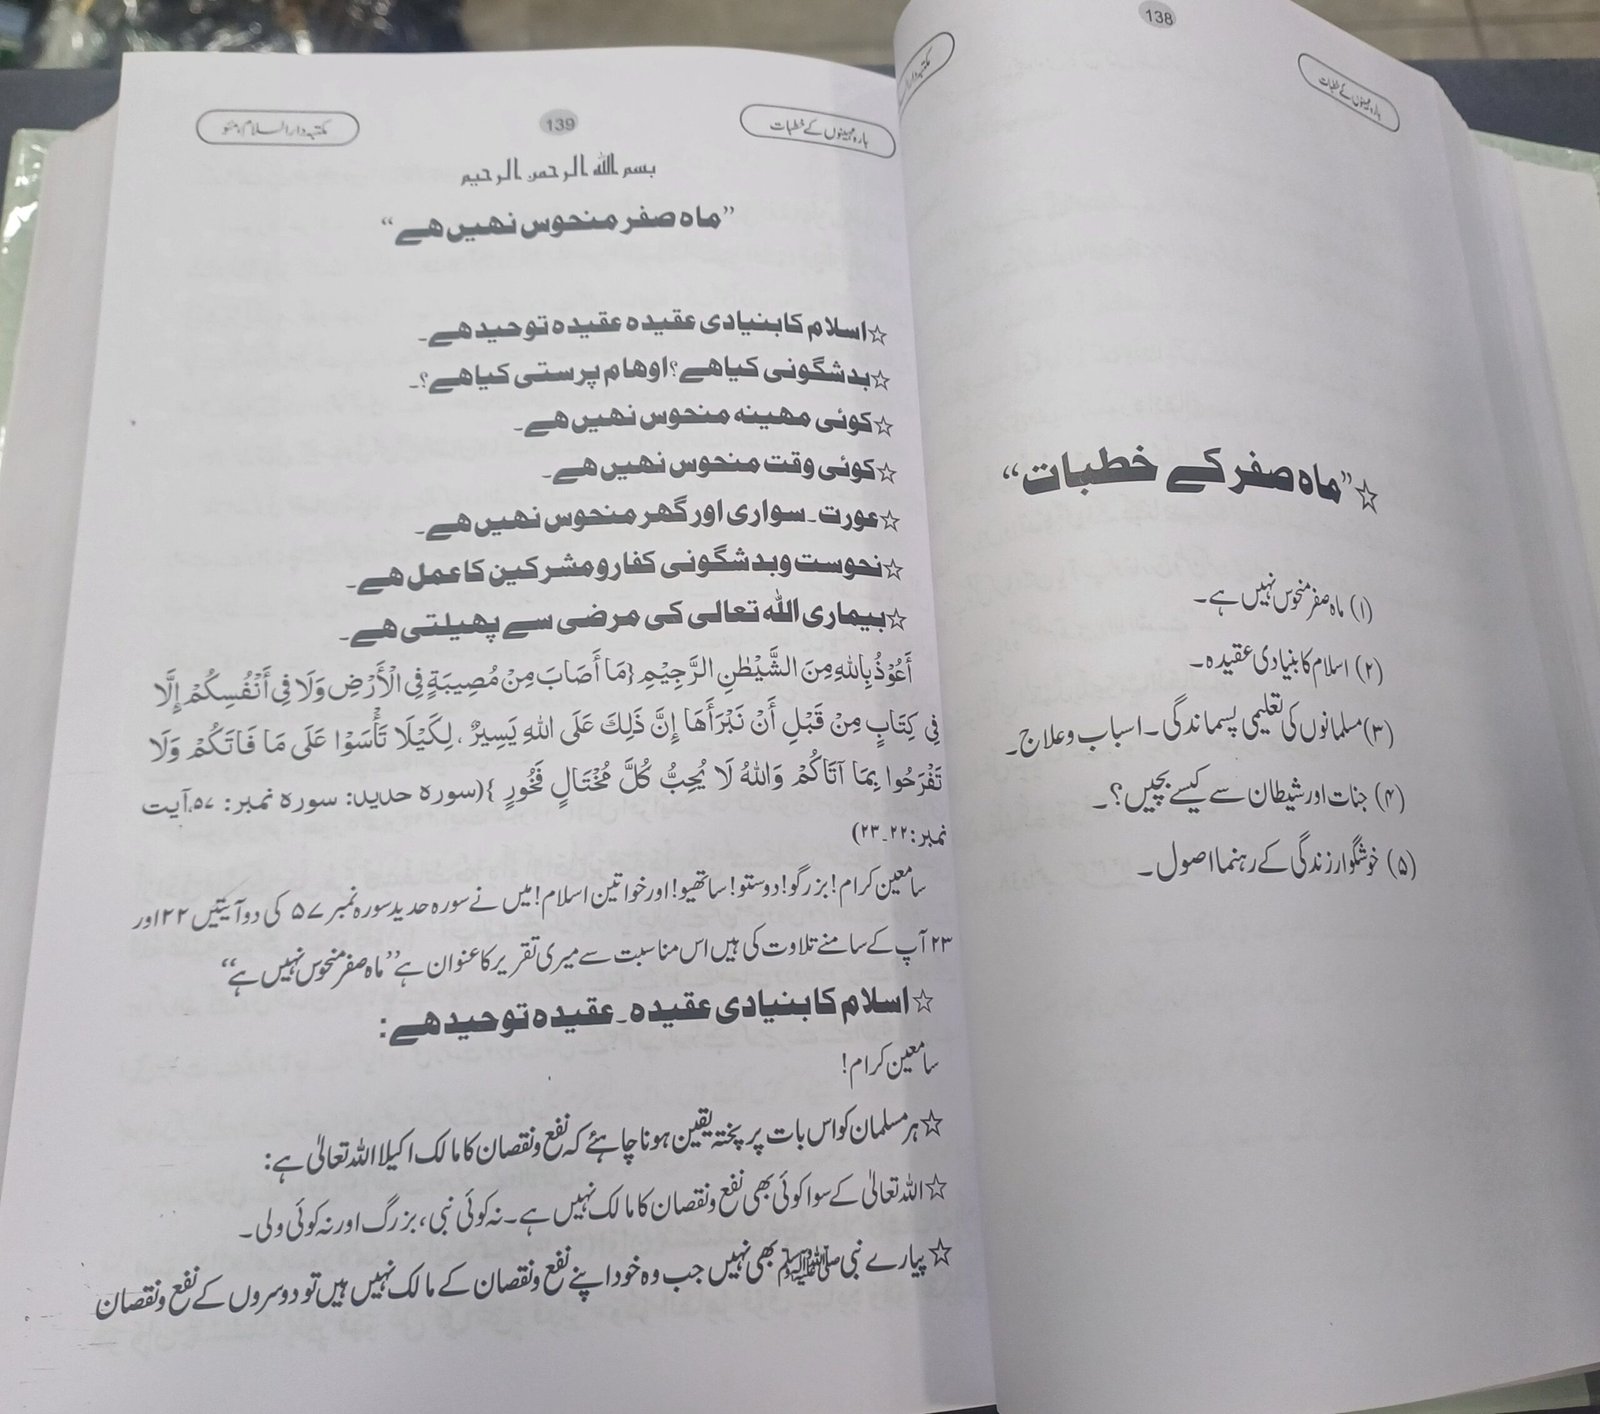 138
بارہ مہینوں کے خطبات
☆”ماہ صفر کے خطبات“
(۱) ماہ صفر منحوس نہیں ہے۔
(۲) اسلام کا بنیادی عقیدہ۔
(۳) مسلمانوں کی تعلیمی پسماندگی۔ اسباب و علاج۔
(۴) جنات اور شیطان سے کیسے بچیں؟۔
(۵) خوشگوار زندگی کے رہنما اصول۔
بارہ مہینوں کے خطبات
139
مکتبہ دار السلام، مئو
بسم الله الرحمن الرحيم
”ماہ صفر منحوس نہیں ہے“
☆اسلام کا بنیادی عقیدہ عقیدہ توحید ہے۔
☆بدشگونی کیا ہے؟ اوہام پرستی کیا ہے؟۔
☆کوئی مہینہ منحوس نہیں ہے۔
☆کوئی وقت منحوس نہیں ہے۔
☆عورت۔ سواری اور گھر منحوس نہیں ہے۔
☆نحوست و بدشگونی کفار و مشرکین کا عمل ہے۔
☆بیماری اللہ تعالی کی مرضی سے پھیلتی ہے۔
أَعُوْذُ بِاللهِ مِنَ الشَّيْطٰنِ الرَّجِيْمِ {مَا أَصَابَ مِنْ مُصِيبَةٍ فِي الْأَرْضِ وَلَا فِي أَنْفُسِكُمْ إِلَّا
فِي كِتَابٍ مِنْ قَبْلِ أَنْ نَبْرَأَهَا إِنَّ ذَلِكَ عَلَى اللهِ يَسِيرٌ ، لِكَيْلَا تَأْسَوْا عَلَى مَا فَاتَكُمْ وَلَا
تَفْرَحُوا بِمَا آتَاكُمْ وَاللهُ لَا يُحِبُّ كُلَّ مُخْتَالٍ فَخُورٍ }(سورہ حدید: سورہ نمبر: ۵۷، آیت
نمبر: ۲۲۔۲۳)
سامعین کرام! بزرگو! دوستو! ساتھیو! اور خواتین اسلام! میں نے سورہ حدید سورہ نمبر ۵۷ کی دو آیتیں ۲۲ اور
۲۳ آپ کے سامنے تلاوت کی ہیں اس مناسبت سے میری تقریر کا عنوان ہے ”ماہ صفر منحوس نہیں ہے“
☆اسلام کا بنیادی عقیدہ۔ عقیدہ توحید ہے:
سامعین کرام!
☆ہر مسلمان کو اس بات پر پختہ یقین ہونا چاہئے کہ نفع و نقصان کا مالک اکیلا اللہ تعالیٰ ہے:
☆اللہ تعالیٰ کے سوا کوئی بھی نفع و نقصان کا مالک نہیں ہے۔ نہ کوئی نبی، بزرگ اور نہ کوئی ولی۔
☆پیارے نبی ﷺ بھی نہیں جب وہ خود اپنے نفع و نقصان کے مالک نہیں ہیں تو دوسروں کے نفع و نقصان